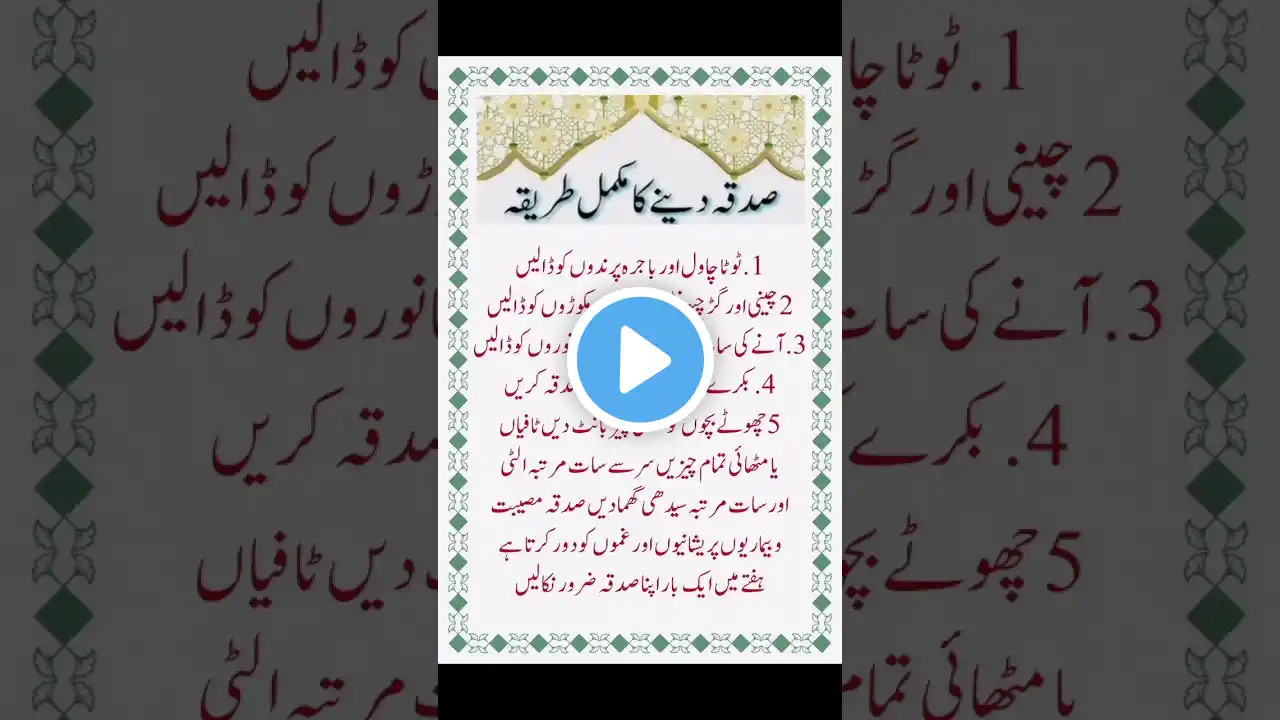 صدقہ دینے کا مکمل طریقہ
1. ٹوٹا چاول اور باجرہ پرندوں کو ڈالیں
2 چینی اور گڑ مکوڑوں کو ڈالیں
3. آنے کی سات جانوروں کو ڈالیں
4. بکرے صدقہ کریں
5 چھوٹے بچوں بانٹ دیں ٹافیاں
یا مٹھائی تمام چیزیں سر سے سات مرتبہ الٹی
اور سات مرتبہ سیدھی گھما دیں صدقہ مصیبت
و بیماریوں پریشانیوں اور غموں کو دور کرتا ہے
ہفتے میں ایک بار اپنا صدقہ ضرور نکالیں